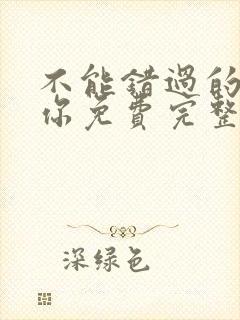 不能错過的
你免費完整
深绿色